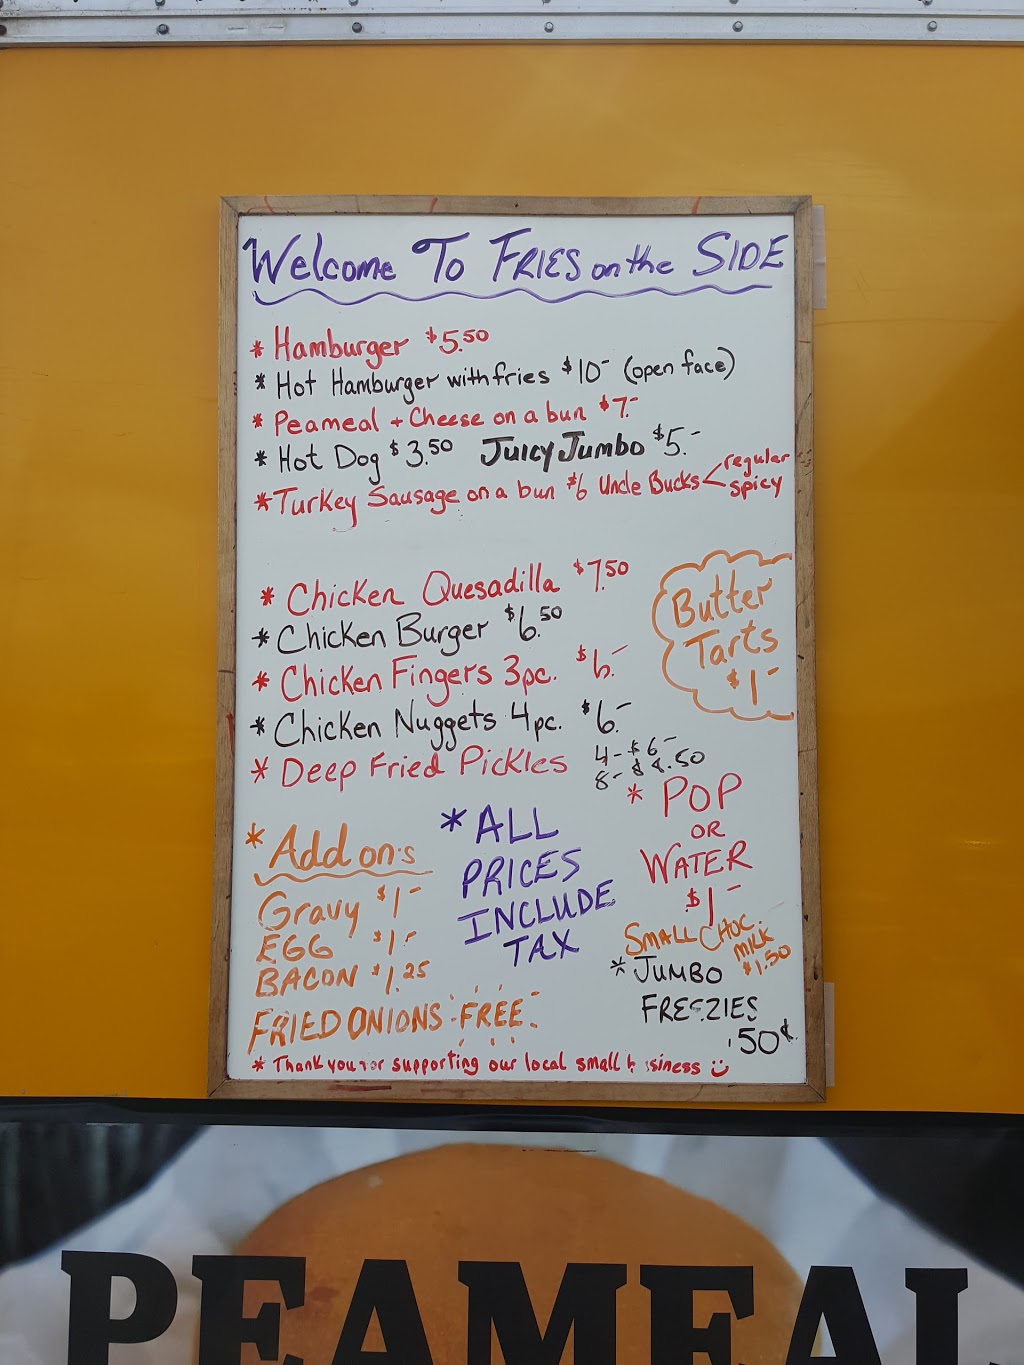 Welcome To FRIES on the SIDE
* Hamburger $5.50
* Hot Hamburger with fries $10- (open face)
* Peameal + Cheese on a bun $7.-
* Hot Dog $3.50 Juicy Jumbo $5.-
* Turkey Sausage on a bun $6 Uncle Bucks < regular
spicy
* Chicken Quesadilla $7.50
* Chicken Burger $6.50
* Chicken Fingers 3pc. $6.-
* Chicken Nuggets 4pc. $6.-
* Deep Fried Pickles 4-$6-
8-$8.50
Butter
Tarts
$1-
* Add on's
Gravy $1-
EGG $1.-
BACON $1.25
FRIED ONIONS FREE
* ALL
PRICES
INCLUDE
TAX
* POP
OR
WATER
$1-
SMALL CHOC.
MILK
$1.50
* JUMBO
FREEZIES
.50¢
* Thank you for supporting our local small business
PEAMEAL